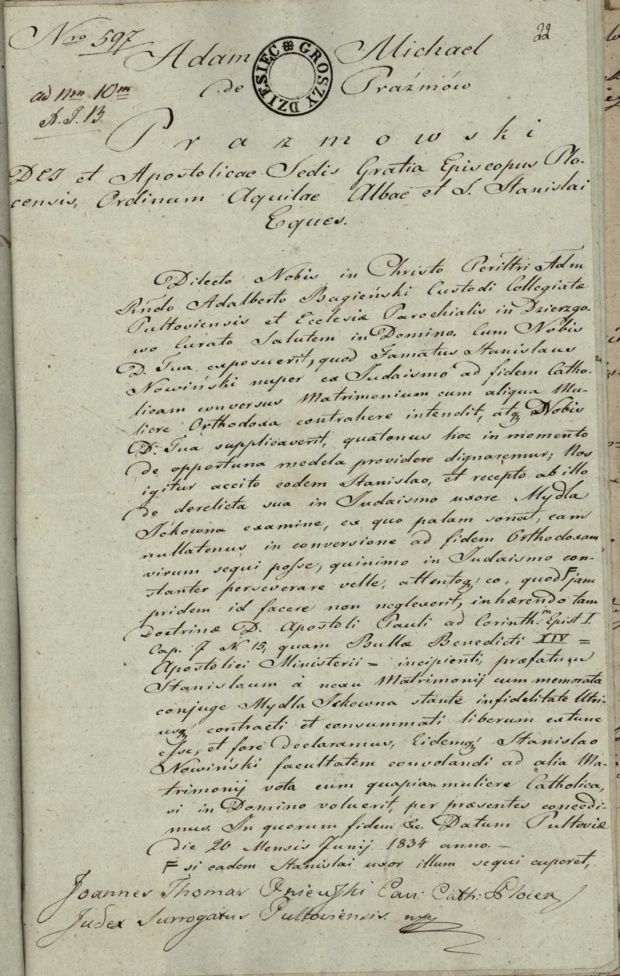 Nro 597
22
Adam Michael
de Prażmów
DZIESIĘC GROSZY
ad Nrm 10m
A. J. 13
Prazmowski
DEI et Apostolicae Sedis Gratia Episcopus Plo-
censis, Ordinum Aquilae Albae et S. Stanislai
Eques.
Dilecto Nobis in Christo Perillri Adm
Rndo Adalberto Bagieński Custodi Collegiatæ
Pultoviensis et Ecclesiæ Parochialis in Dzierzgo-
wo Curato Salutem in Domino. Cum Nobis
D. Tua exposuerit, quod Famatus Stanislaus
Nowiński nuper ex Judaismo ad fidem Catho-
licam conversus Matrimonium cum aliqua Mu-
liere Orthodoxa contrahere intendit, atqz Nobis
D. Tua supplicaverit, quatenus hoc in momento
de opportuna medela providere dignaremur; Nos
igitur accito eodem Stanislao, et recepto ab illo
de derelicta sua in Judaismo uxore Mydla
Jckowna examine, ex quo palam sonat, eam
nullatenus in conversione ad fidem Orthodoxam
virum sequi posse, quinimo in Judaismo con-
stanter perseverare velle, attentoqz eo, quod F jam
pridem id facere non neglexerit, inhærendo tam
doctrinæ D. Apostoli Pauli ad Corinth. Epist I.
Cap. 7 N 15, quam Bullæ Benedicti XIV =
Apostolici Ministerii = incipienti, præfatum
Stanislaum à nexu Matrimonij cum memorata
conjuge Mydla Jckowna stante infidelitate Utri-
usqz contracti et consummati liberum ex tunc
esse, et fore declaramus, Eidemqz Stanislao
Nowiński facultatem convolandi ad alia Ma-
trimonij vota cum quapiam muliere Catholica,
si in Domino voluerit, per præsentes concedi-
mus. In quorum fidem &c. Datum Pultoviæ
die 26 Mensis Junij 1834 anno.—
F si eadem Stanislai uxor illum sequi cuperet,
Joannes Thomas Can: Cath: Plocen
Judex Surrogatus Pultoviensis mpp